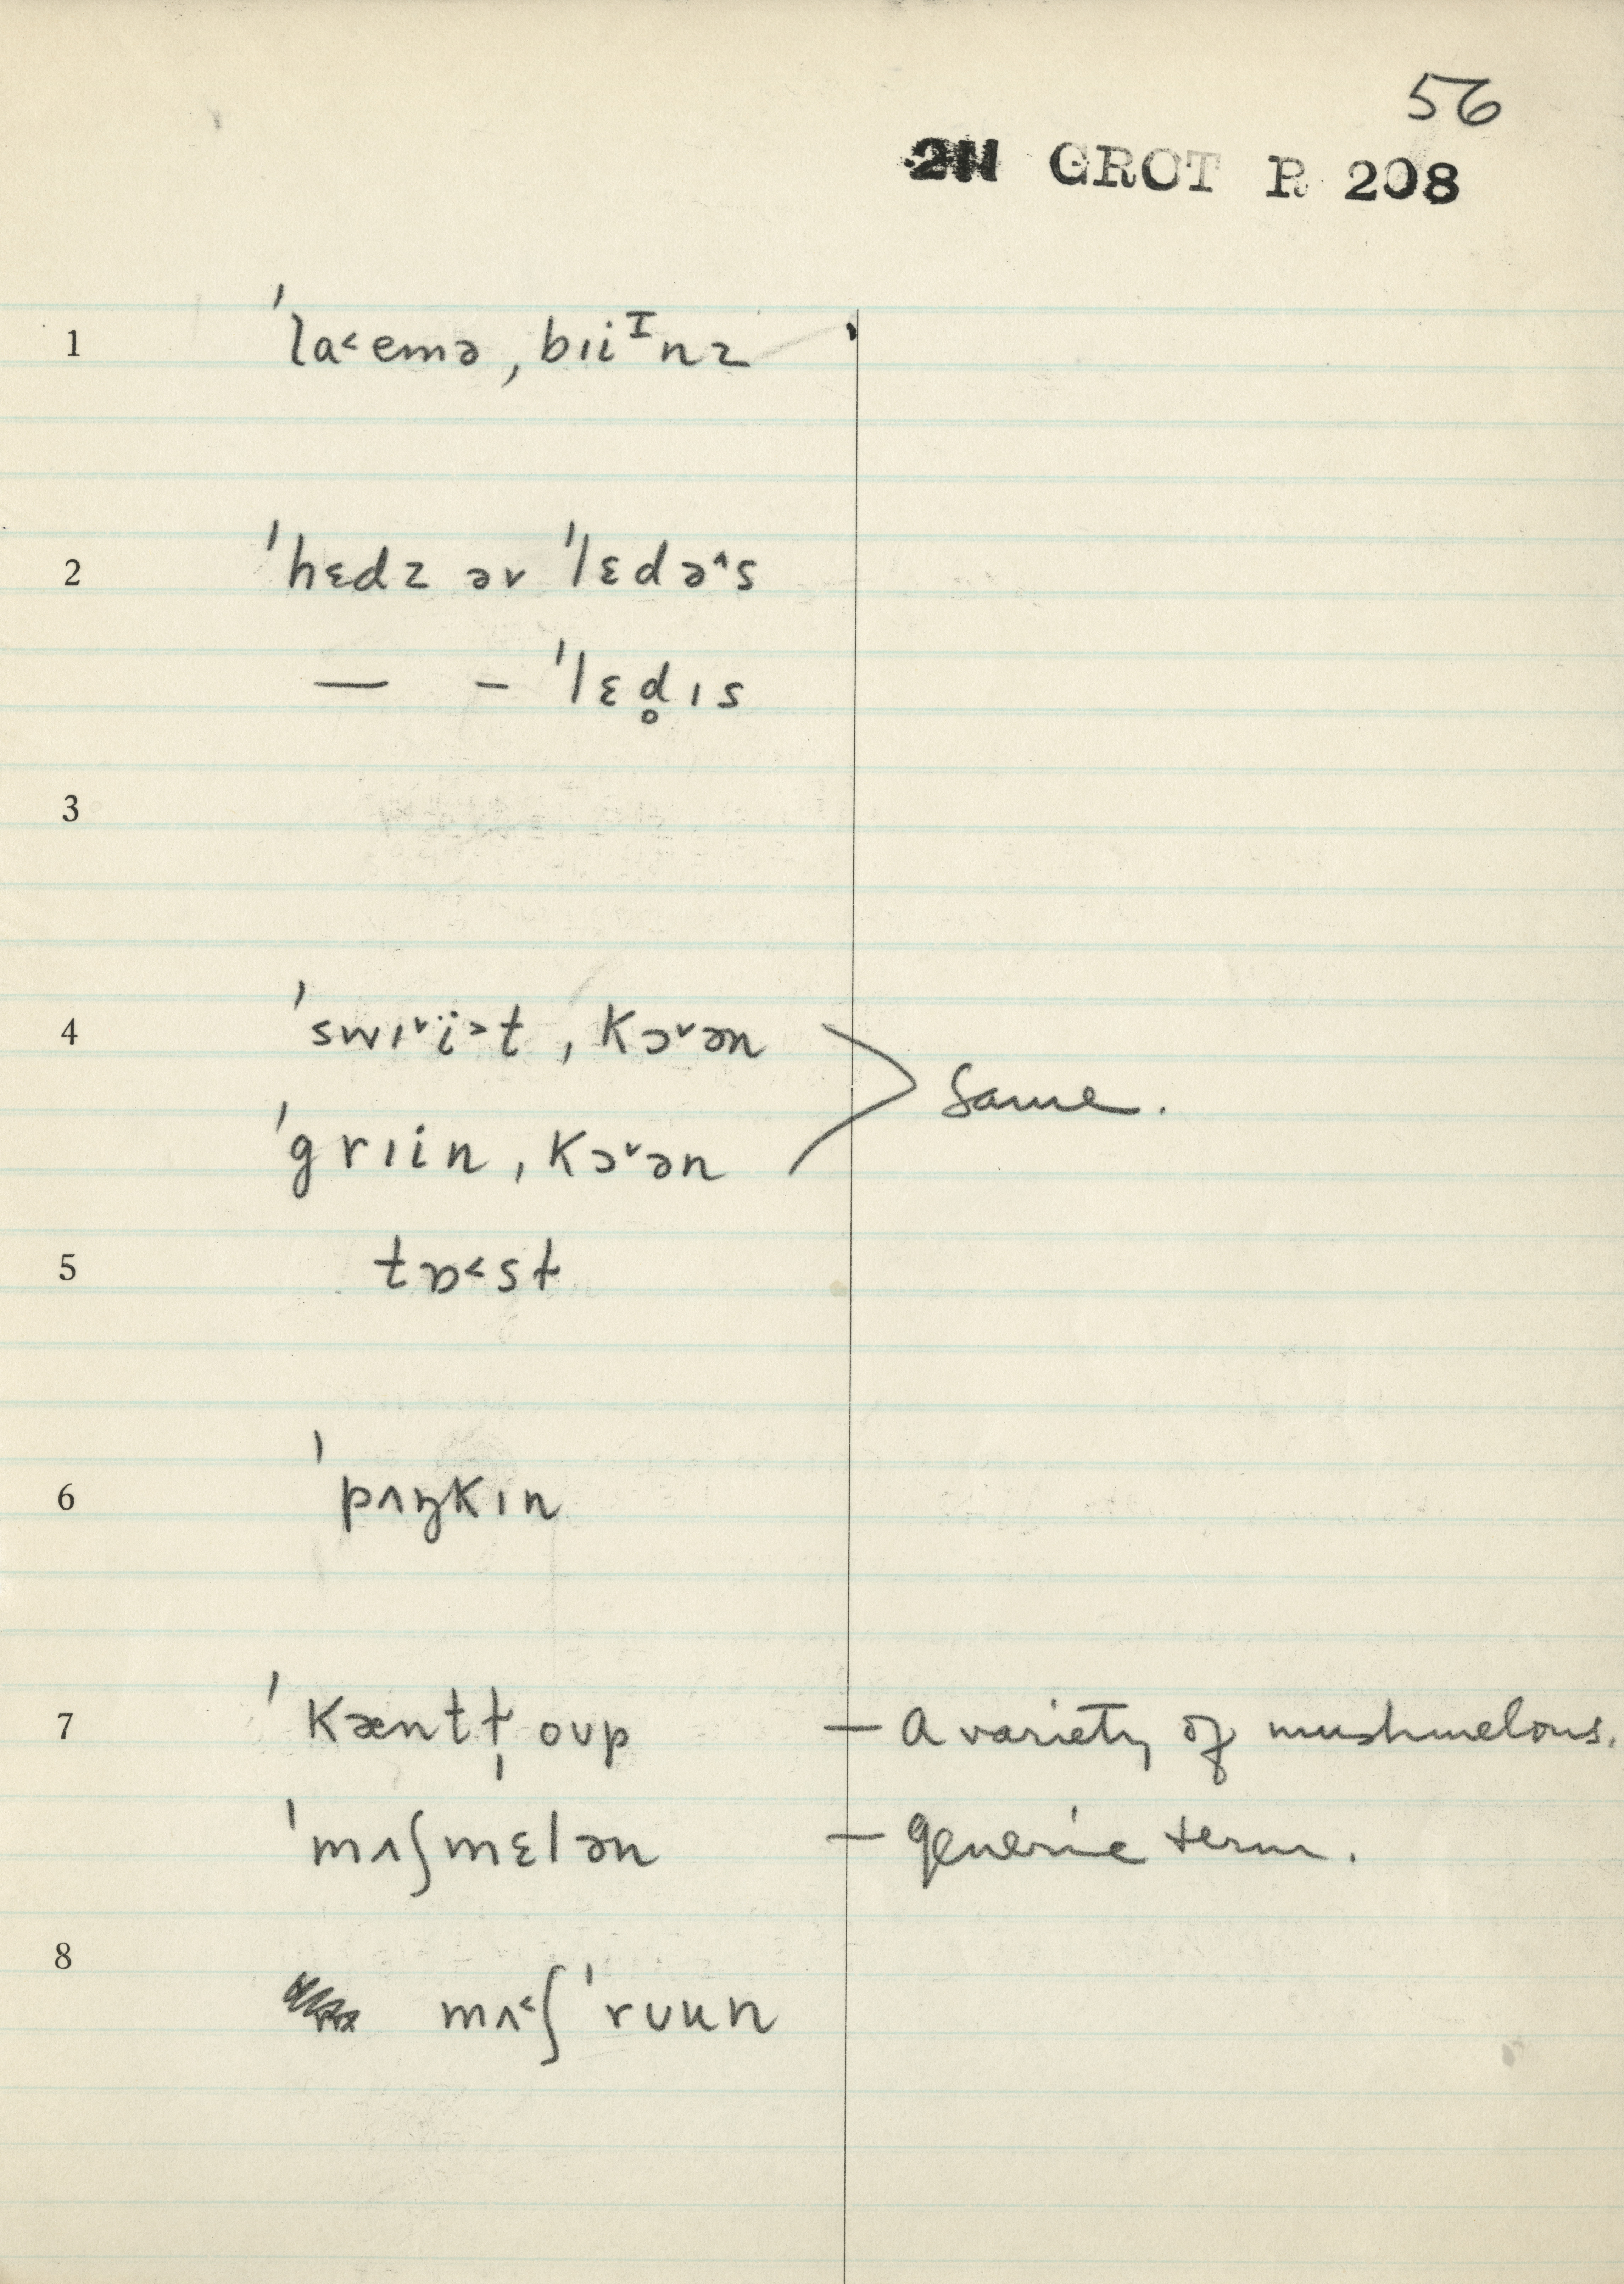 56
2N GROT R 208
1 ˈla˂emə ˌbıiᴵnz
2 ˈhɛdz əv ˈlɛdə˄s
— – ˈlɛd̥ıs
3
4 ˈswı˅ï˃t ˌkɔ˅ən
Same.
ˈgrıin ˌkɔ˅ən
5 tɒ˂sɫ
6 ˈpʌŋkın
7 ˈkæntɫ̩oʊp — A variety of mushmelons.
ˈmʌʃmɛlən — generic term.
8 mʌ˂ʃˈrʊun